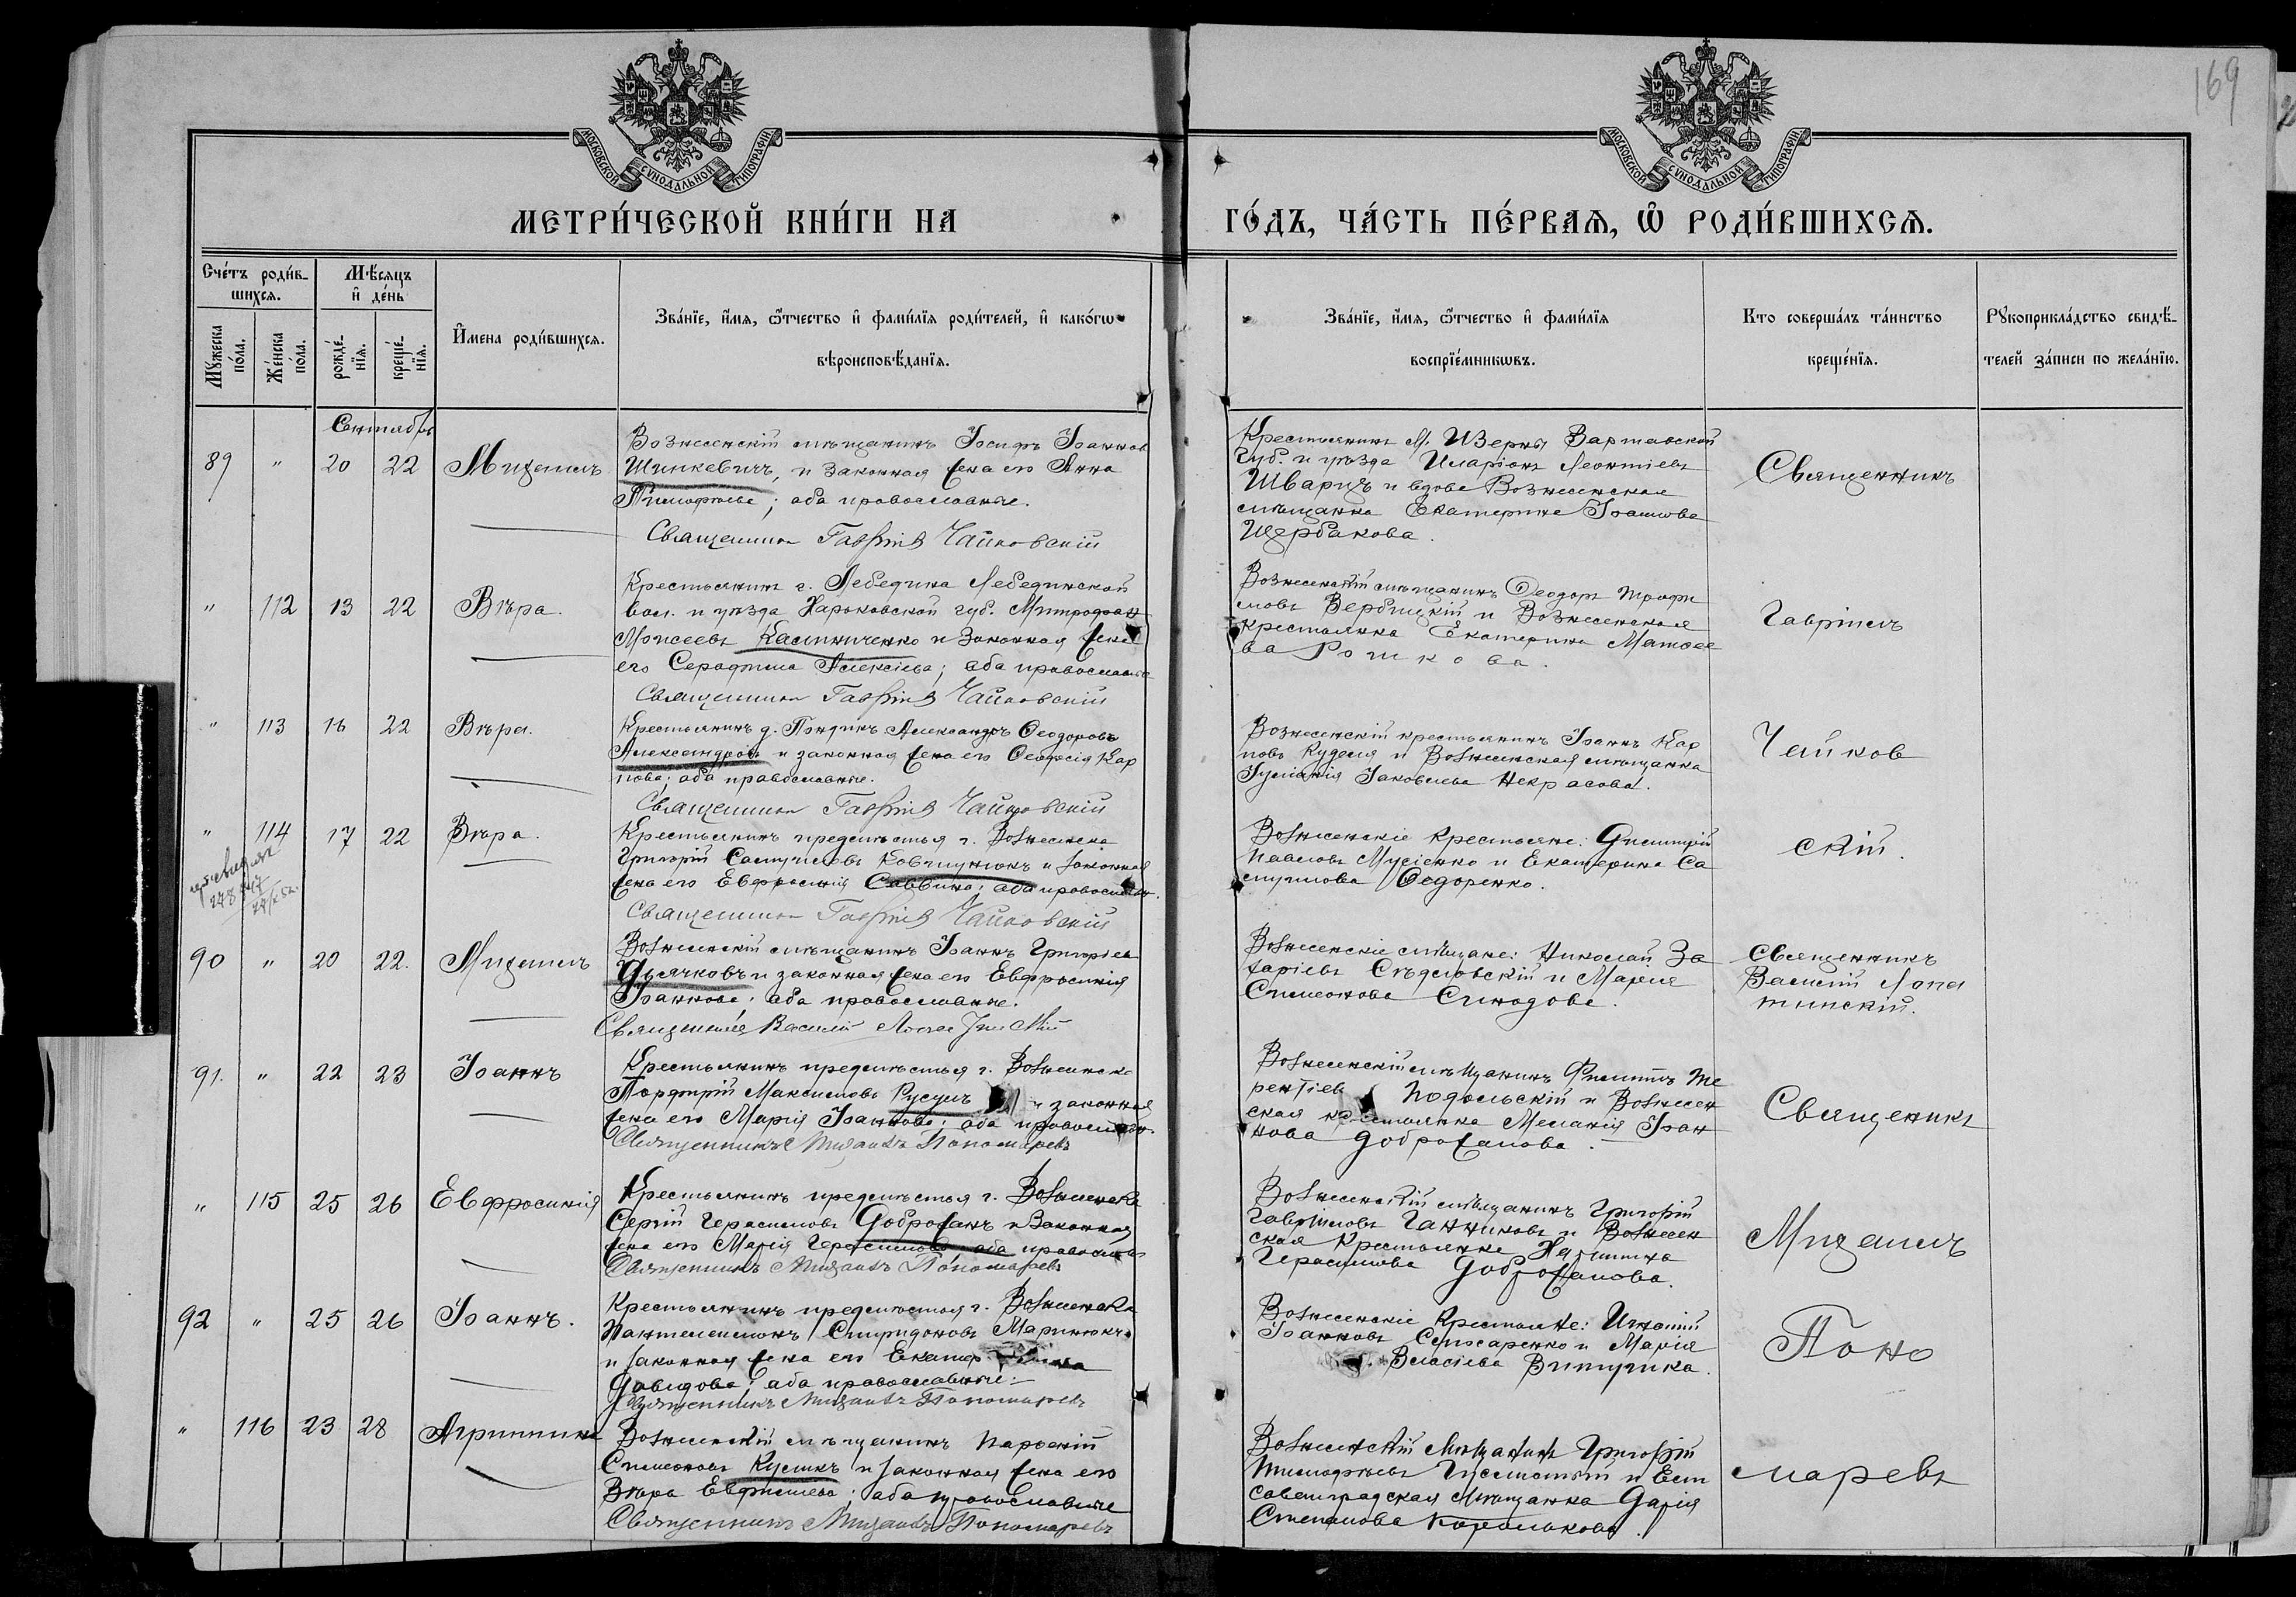 169
МОСКОВСКОЙ СѴНОДАЛЬНОЙ ТИПОГРАФІИ
МОСКОВСКОЙ СѴНОДАЛЬНОЙ ТИПОГРАФІИ
МЕТРИ́ЧЕСКОЙ КНИ́ГИ НА
ГО́ДЪ, ЧА́СТЬ ПЕ́РВАЯ, Ѽ РОДИ́ВШИХСЯ.
Сче́тъ роди́в-
шихся.
Мꙋжеска по́ла.
Же́нска по́ла.
Мѣ́сяцъ
и҆ де́нь
рожде́-
нїя.
креще́-
нїя.
И҆мена роди́вшихся.
Зва́нїе, и҆́мя, ѻ҆́тчество и҆ фами́лїя роди́телей, и҆ како́гѡ
вѣроисповѣ́данїя.
Зва́нїе, и҆́мя, ѻ҆́тчество и҆ фами́лїя
воспрїе́мникѡвъ.
Кто соверша́лъ та́инство
креще́нїя.
Рꙋкоприкла́дство свидѣ́-
телей за́писи по жела́нїю.
Сентябрь
89 " 20 22 Михаилъ
Вознесенскій мѣщанинъ Іосифъ Іоаннов
Шинкевичъ, и законная жена его Анна
Тимофѣева; оба православные.
Священникъ Гавріилъ Чайковскій
Крестьянинъ М. Изерны Варшавской
Губ. и уѣзда Иларіонъ Леонтіевъ
Шварцъ и вдова Вознесенская
мѣщанка Екатерина Іоаннова
Щербакова.
Священникъ
" 112 13 22 Вѣра.
Крестьянинъ г. Лебедина Лебединской
вол. и уѣзда Харьковской губ. Митрофан
Моисеевъ Калиниченко и законная жена
его Серафима Алексіева; оба православные
Священникъ Гавріилъ Чайковскій
Вознесенскій мѣщанинъ Ѳеодоръ Трофи
мовъ Вербицкій и Вознесенская
крестьянка Екатерина Матѳее
ва Рошкова.
Гавріилъ
" 113 16 22 Вѣра.
Крестьянинъ д. Пондикъ Александръ Ѳеодоровъ
Александровъ и законная жена его Ѳеодосія Кар
пова; оба православные.
Священникъ Гавріилъ Чайковскій
Вознесенскій крестьянинъ Іоаннъ Кар
повъ Куделя и Вознесенская мѣщанка
Іуліанія Іаковлева Некрасова.
Чайков
" 114 17 22 Вѣра.
Крестьянинъ предмѣстья г. Вознесенска
Григорій Самуиловъ Ковтунюкъ и законная
жена его Евфросинія Саввина; оба православн.
Священникъ Гавріилъ Чайковскій
Вознесенскіе крестьяне: Димитрій
Павловъ Мусіенко и Екатерина Са
муилова Ѳедоренко.
скій.
90 " 20 22. Михаилъ
Вознесенскій мѣщанинъ Іоаннъ Григоріев
Дьячковъ и законная жена его Евфросинія
Іоаннова; оба православные.
Священникъ Василій Лопатинскій
Вознесенскіе мѣщане: Николай За
харіевъ Слѣдловскій и Марія
Симеонова Синадова.
Священникъ
Василій Лопа
тинскій.
91. " 22 23 Іоаннъ
Крестьянинъ предмѣстья г. Вознесенска
Порфирій Максимовъ Русулъ и законная
жена его Марія Іоаннова; оба православн.
Священникъ Михаилъ Пономаревъ
Вознесенскій мѣщанинъ Филиппъ Те
рентіевъ Подольскій и Вознесен
ская крестьянка Меланія Іоан
нова Доброжанова.
Священникъ
" 115 25 26 Евфросинія
Крестьянинъ предмѣстья г. Вознесенска
Сергій Герасимовъ Доброжанъ и законная
жена его Марія Герасимова; оба православн
Священникъ Михаилъ Пономаревъ
Вознесенскій мѣщанинъ Григорій
Гавріиловъ Ганниковъ и Вознесен
ская крестьянка
Герасимова Доброжанова.
Михаилъ
92 " 25 26 Іоаннъ.
Крестьянинъ предмѣстья г. Вознесенска
Пантелеимонъ Спиридоновъ Маринюкъ
и законная жена его Екатерина
Давидова; оба православные.
Священникъ Михаилъ Пономаревъ
Вознесенскіе крестьяне: Игнатій
Іоанновъ Слюсаренко и Марія
Власіева Витушка.
Поно
" 116 23 28 Агриппина
Вознесенскій мѣщанинъ Парѳеній
Симеоновъ Кусикъ и законная жена его
Вѣра Евфиміева; оба православные
Священникъ Михаилъ Пономаревъ
Вознесенскій мѣщанинъ Григорій
Тимофѣевъ и Ели
саветградская мѣщанка Дарія
Степанова Королькова.
маревъ